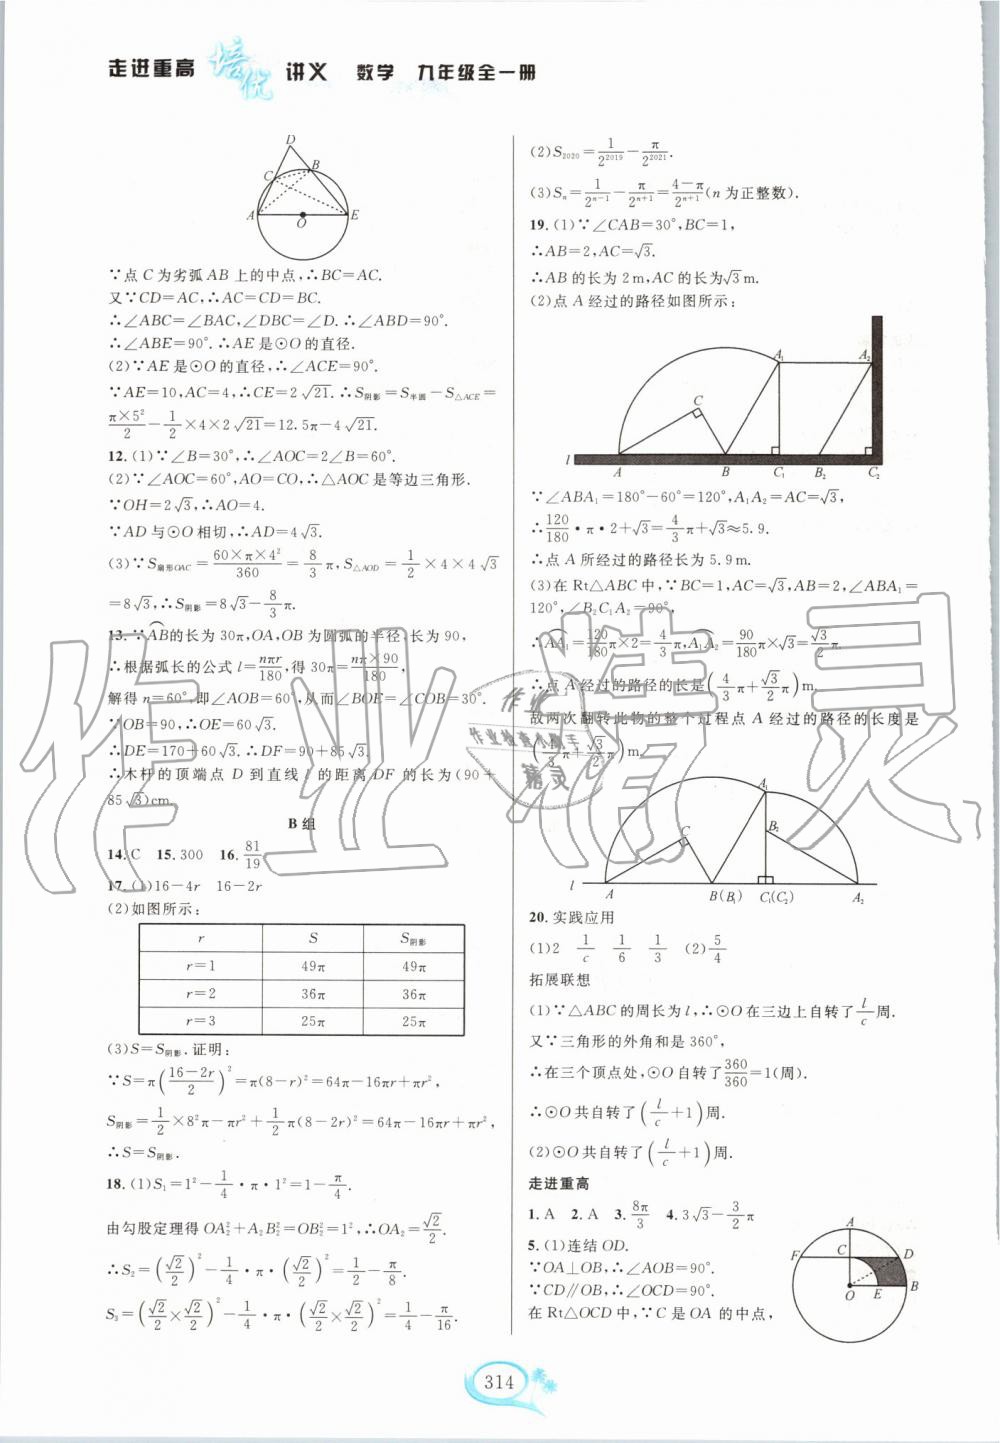 走进重高 培优 讲义 数学 九年级全一册
D
B
C
A
O
E
∵点 C 为劣弧 AB 上的中点,∴BC=AC.
又∵CD=AC,∴AC=CD=BC.
∴∠ABC=∠BAC,∠DBC=∠D.∴∠ABD=90°.
∴∠ABE=90°.∴AE是⊙O的直径.
(2)∵AE是⊙O的直径,∴∠ACE=90°.
∵AE=10,AC=4,∴CE=2√21.∴S阴影=S半圆−S△ACE=
π×5²/2−1/2×4×2√21=12.5π−4√21.
12.(1)∵∠B=30°,∴∠AOC=2∠B=60°.
(2)∵∠AOC=60°,AO=CO,∴△AOC是等边三角形.
∵OH=2√3,∴AO=4.
∵AD与⊙O相切,∴AD=4√3.
(3)∵S扇形OAC=60×π×4²/360=8/3π,S△AOD=1/2×4×4√3
=8√3,∴S阴影=8√3−8/3π.
13.∵AB的长为30π,OA,OB为圆弧的半径,长为90,
∴根据弧长的公式l=nπr/180,得30π=nπ×90/180.
解得n=60°,即∠AOB=60°,从而∠BOE=∠COB=30°.
∵OB=90,∴OE=60√3.
∴DE=170+60√3.∴DF=90+85√3.
∴木杆的顶端点D到直线l的距离DF的长为(90+
85√3)cm.
B组
14.C 15.300 16.81/19
17.(1)16−4r 16−2r
(2)如图所示:
r S S阴影
r=1 49π 49π
r=2 36π 36π
r=3 25π 25π
(3)S=S阴影.证明:
∵S=π((16−2r)/2)²=π(8−r)²=64π−16πr+πr²,
S阴影=1/2×8²π−πr²+1/2π(8−2r)²=64π−16πr+πr²,
∴S=S阴影.
18.(1)S₁=1²−1/4·π·1²=1−π/4.
由勾股定理得OA₂²+A₂B₂²=OB₂²=1²,∴OA₂=√2/2.
∴S₂=(√2/2)²−1/4·π·(√2/2)²=1/2−π/8.
S₃=(√2/2×√2/2)²−1/4·π·(√2/2×√2/2)²=1/4−π/16.
(2)S₂₀₂₀=1/2²⁰¹⁹−π/2²⁰²¹.
(3)Sₙ=1/2ⁿ⁻¹−π/2ⁿ⁺¹=(4−π)/2ⁿ⁺¹(n为正整数).
19.(1)∵∠CAB=30°,BC=1,
∴AB=2,AC=√3.
∴AB的长为2m,AC的长为√3m.
(2)点A经过的路径如图所示:
A₁ A₂
C
l
A B C₁ B₂ C₂
∵∠ABA₁=180°−60°=120°,A₁A₂=AC=√3,
∴120/180·π·2+√3=4/3π+√3≈5.9.
∴点A所经过的路径长为5.9m.
(3)在Rt△ABC中,∵BC=1,AC=√3,AB=2,∠ABA₁=
120°,∠B₂C₁A₂=90°,
∴AA₁=120/180π×2=4/3π,A₁A₂=90/180π×√3=√3/2π.
∴点A经过的路径的长是(4/3π+√3/2π)m.
故两次翻转此物的整个过程点A经过的路径的长度是
(4/3π+√3/2π)m.
A₁
C
B₂
l
A B(B₁) C₁(C₂) A₂
20.实践应用
(1)2 1/c 1/6 1/3 (2)5/4
拓展联想
(1)∵△ABC的周长为l,∴⊙O在三边上自转了l/c周.
又∵三角形的外角和是360°,
∴在三个顶点处,⊙O自转了360/360=1(周).
∴⊙O共自转了(l/c+1)周.
(2)⊙O共自转了(l/c+1)周.
走进重高
1.A 2.A 3.8π/3 4.3√3−3/2π
5.(1)连结OD.
∵OA⊥OB,∴∠AOB=90°.
∵CD∥OB,∴∠OCD=90°.
在Rt△OCD中,∵C是OA的中点,
A
F
C
D
O
E
B
314
作业精灵
作业
作业检查小帮手
精灵